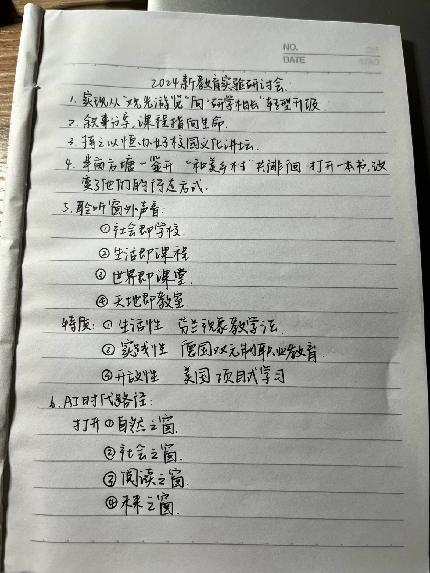 NO.
DATE
2024新教育实验研讨会
1. 实现从"观光游览"向"研学相长"转型升级
2. 叙事分享,课程指向生命.
3. 持之以恒办好校园文化讲坛.
4. 半亩方塘一鉴开 "和美乡村"共徘徊 打开一本书,改
变了他们的行走方式.
5. 聆听窗外声音:
①社会即学校.
②生活即课程
③世界即课堂
④天地即教室
特质: ①生活性 芬兰现象教学法.
②实践性 德国双元制职业教育.
③开放性 美国项目式学习
6. AI时代路径:
打开①自然之窗.
②社会之窗.
③阅读之窗.
④未来之窗.